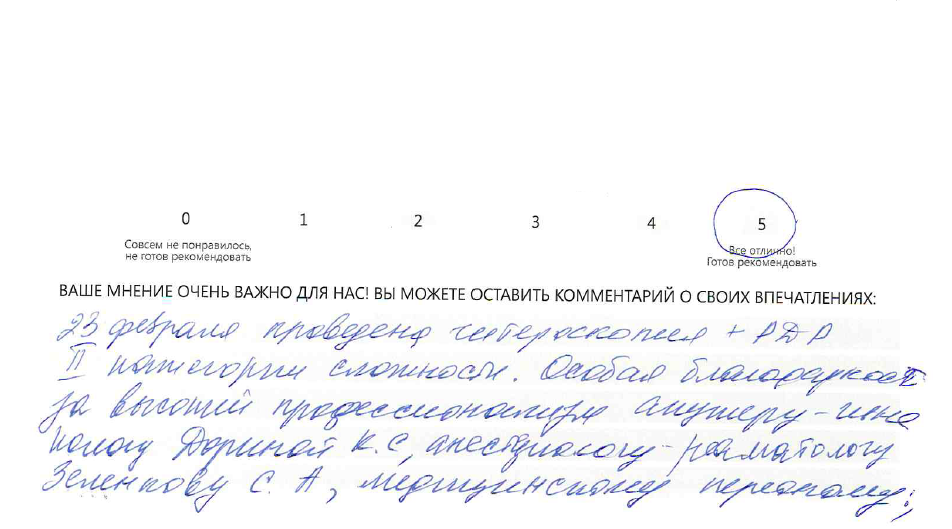 0 1 2 3 4 5
Совсем не понравилось, Все отлично!
не готов рекомендовать Готов рекомендовать
ВАШЕ МНЕНИЕ ОЧЕНЬ ВАЖНО ДЛЯ НАС! ВЫ МОЖЕТЕ ОСТАВИТЬ КОММЕНТАРИЙ О СВОИХ ВПЕЧАТЛЕНИЯХ:
23 февраля проведена гистероскопия + РДВ
II категории сложности. Особая благодарность
за высокий профессионализм акушеру-гине
кологу Дориной К.С, анестезиологу-реаматологу
Зеленкову С. А, медицинскому персоналу;